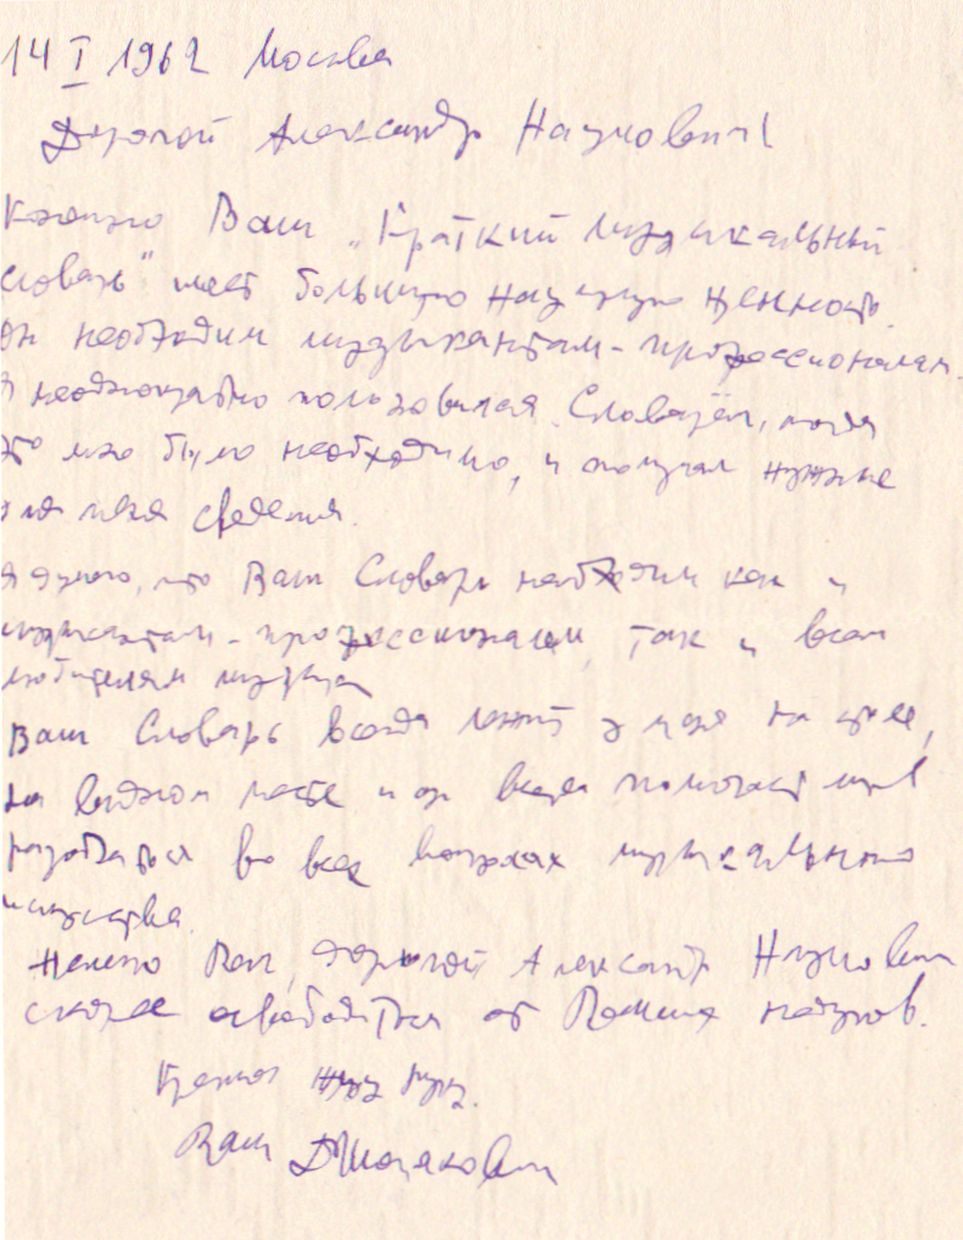 14 I 1962 Москва
Дорогой Александр Наумович!
Конечно Ваш „Краткий музыкальный
словарь" имеет большую научную ценность.
Он необходим музыкантам-профессионалам.
Я неоднократно пользовался Словарём, когда
это мне было необходимо, и получал нужные
для меня сведения.
Я думаю, что Ваш Словарь необходим как и
музыкантам-профессионалам, так и всем
любителям музыки
Ваш Словарь всегда лежит у меня на столе,
на видном месте и он всегда помогает мне
разобраться во всех вопросах музыкального
искусства.
Желаю Вам, дорогой Александр Наумович
скорее освободиться от Ваших недугов.
Крепко жму руку.
Ваш ДШостакович